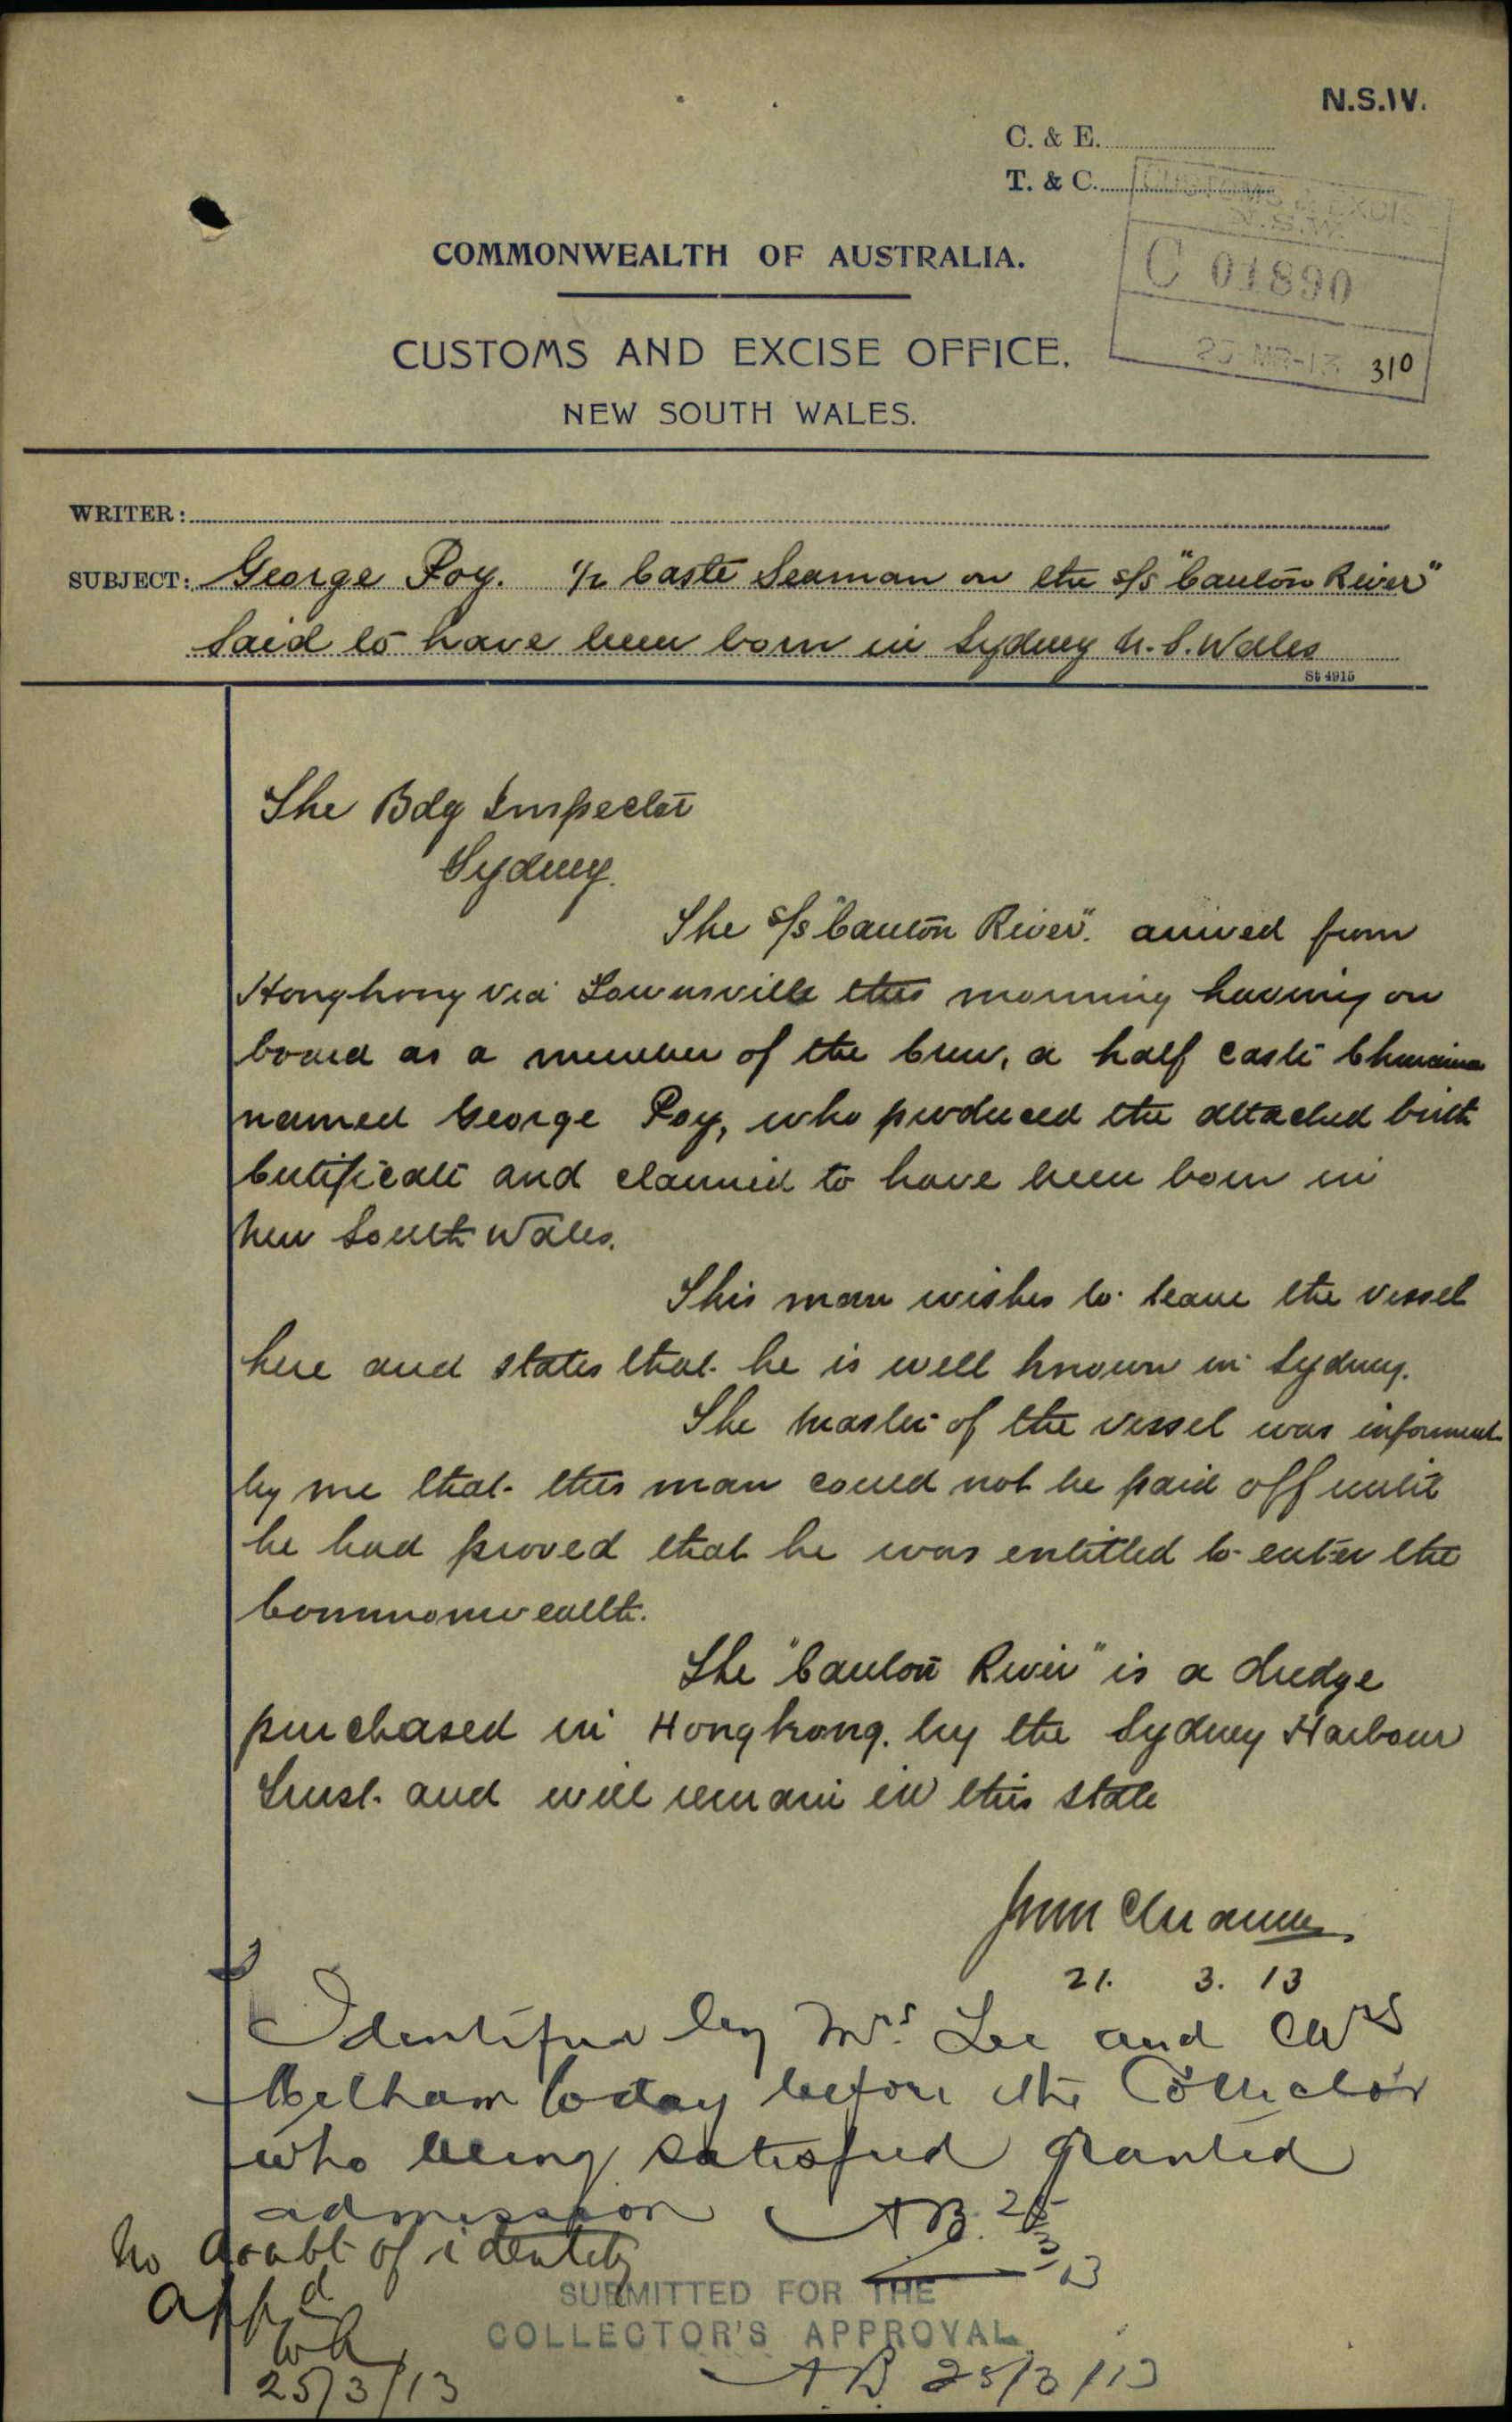 N.S.IV.
C. & E.
T. & C.
CUSTOMS & EXCISE
N.S.W.
C 01890
25 MR-13 310
COMMONWEALTH OF AUSTRALIA.
CUSTOMS AND EXCISE OFFICE.
NEW SOUTH WALES.
WRITER:
SUBJECT: George Poy. 1/2 Caste Seaman on the s/s "Canton River"
Said to have been born in Sydney N.S. Wales
St 4915
The Bdg Inspector
Sydney.
The s/s "Canton River". arrived from
Hongkong via Townsville this morning having on
board as a member of the Crew, a half caste Chinaman
named George Poy, who produced the attached birth
Certificate and claimed to have been born in
New South Wales.
This man wishes to leave the vessel
here and states that he is well known in Sydney.
The Master of the vessel was informed
by me that this man could not be paid off until
he had proved that he was entitled to enter the
Commonwealth.
The "Canton River" is a dredge
purchased in Hongkong. by the Sydney Harbour
Trust. and will remain in this State
21. 3. 13
Identified by Mrs. Lee and Mrs
Pelham today before the Collector
who being satisfied granted
admission AB. 25/3/13
No doubt of identity
SUBMITTED FOR THE
COLLECTOR'S APPROVAL
Appd
25/3/13
AB 25/3/13